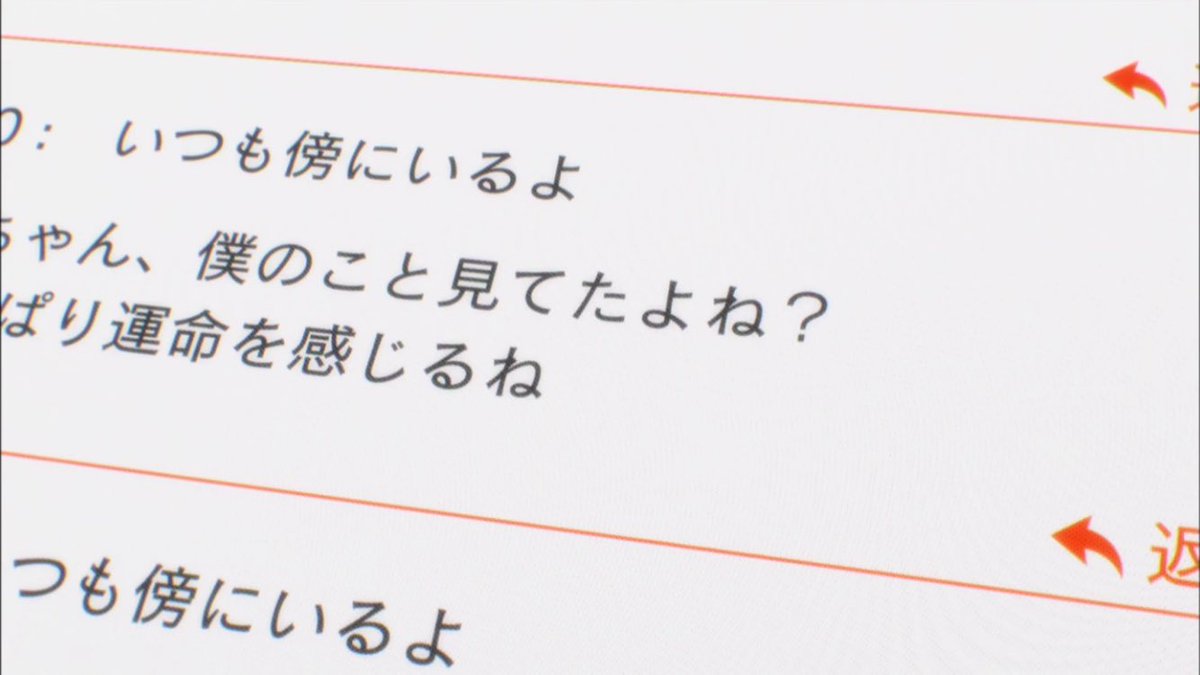 : いつも傍にいるよ
ちゃん、僕のこと見てたよね？
ぱり運命を感じるね
返
つも傍にいるよ